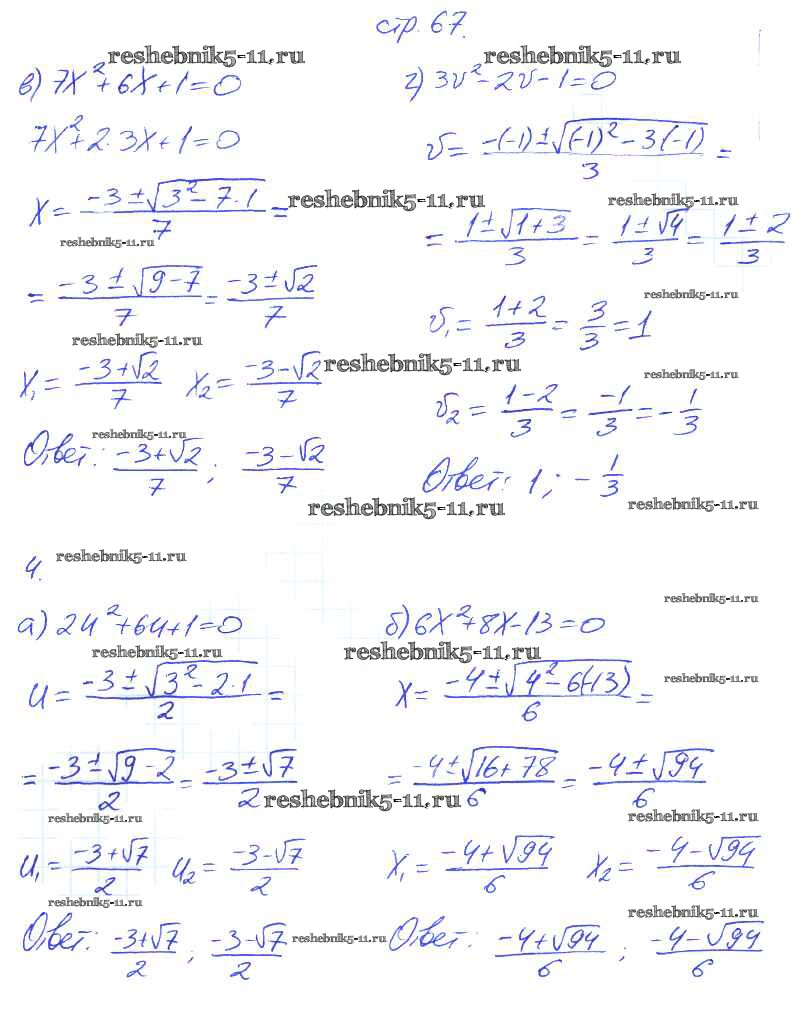 стр. 67.
reshebnik5-11.ru
в) 7x² + 6x + 1 = 0
7x² + 2·3x + 1 = 0
x = (-3 ± √(3² - 7·1))/7 =
reshebnik5-11.ru
reshebnik5-11.ru
= (-3 ± √(9 - 7))/7 = (-3 ± √2)/7
reshebnik5-11.ru
x₁ = (-3 + √2)/7 x₂ = (-3 - √2)/7
reshebnik5-11.ru
reshebnik5-11.ru
Ответ: (-3 + √2)/7 ; (-3 - √2)/7
reshebnik5-11.ru
reshebnik5-11.ru
г) 3v² - 2v - 1 = 0
v = (-(-1) ± √((-1)² - 3(-1)))/3 =
reshebnik5-11.ru
= (1 ± √(1 + 3))/3 = (1 ± √4)/3 = (1 ± 2)/3
reshebnik5-11.ru
v₁ = (1 + 2)/3 = 3/3 = 1
reshebnik5-11.ru
v₂ = (1 - 2)/3 = -1/3 = - 1/3
Ответ: 1 ; - 1/3
reshebnik5-11.ru
4.
reshebnik5-11.ru
а) 2u² + 6u + 1 = 0
reshebnik5-11.ru
u = (-3 ± √(3² - 2·1))/2 =
= (-3 ± √(9 - 2))/2 = (-3 ± √7)/2
reshebnik5-11.ru
reshebnik5-11.ru
u₁ = (-3 + √7)/2 u₂ = (-3 - √7)/2
reshebnik5-11.ru
Ответ: (-3 + √7)/2 ; (-3 - √7)/2
reshebnik5-11.ru
reshebnik5-11.ru
б) 6x² + 8x - 13 = 0
reshebnik5-11.ru
x = (-4 ± √(4² - 6(-13)))/6 =
reshebnik5-11.ru
= (-4 ± √(16 + 78))/6 = (-4 ± √94)/6
reshebnik5-11.ru
x₁ = (-4 + √94)/6 x₂ = (-4 - √94)/6
reshebnik5-11.ru
Ответ: (-4 + √94)/6 ; (-4 - √94)/6